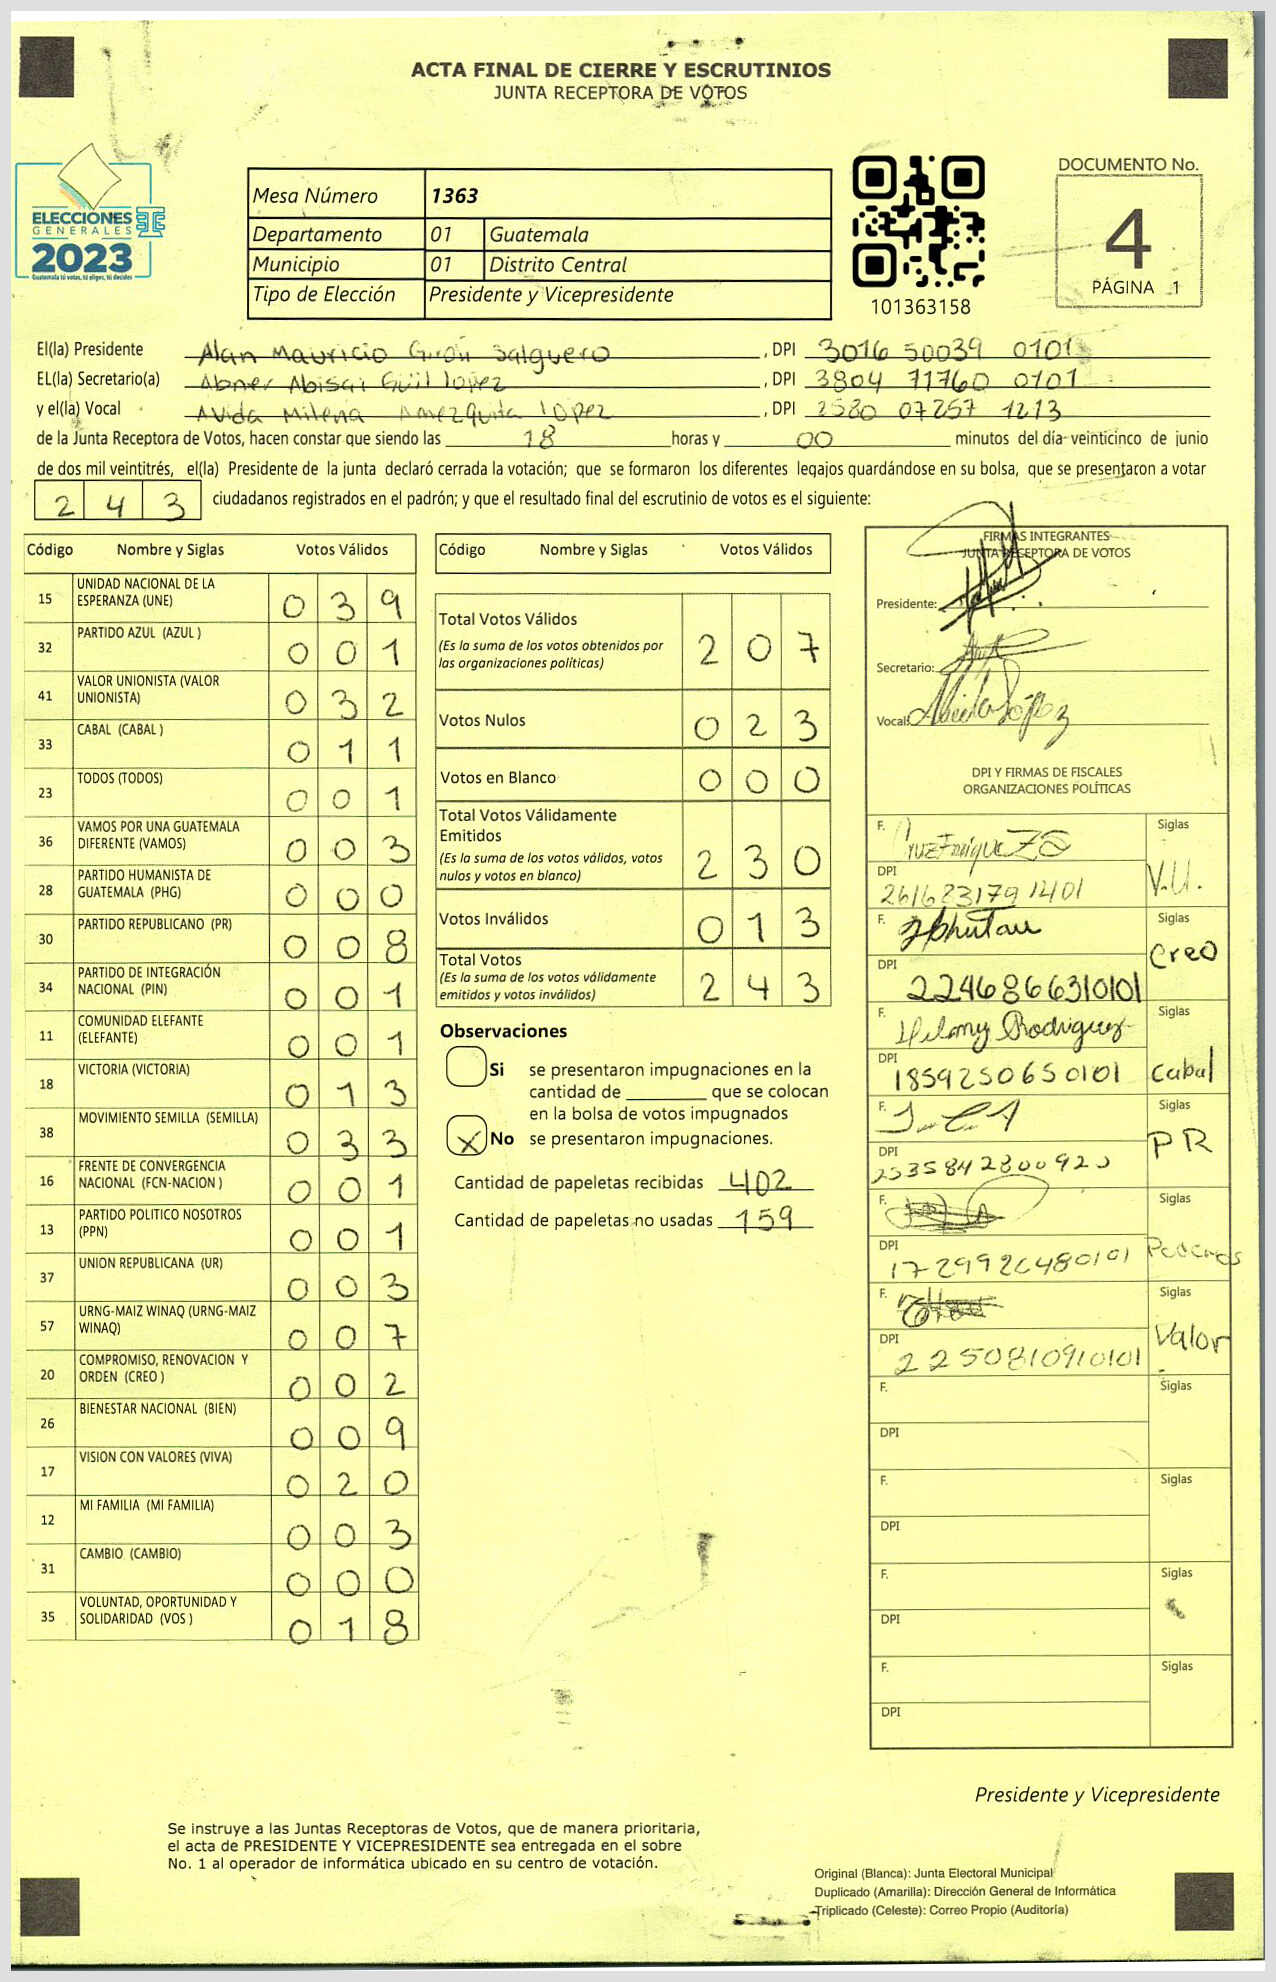 ACTA FINAL DE CIERRE Y ESCRUTINIOS
JUNTA RECEPTORA DE VOTOS
ELECCIONES
GENERALES
2023
Guatemala tú votas, tú eliges, tú decides
Mesa Número 1363
Departamento 01 Guatemala
Municipio 01 Distrito Central
Tipo de Elección Presidente y Vicepresidente
101363158
DOCUMENTO No.
4
PÁGINA 1
El(la) Presidente Alan Mauricio Girón Salguero , DPI 3016 50039 0101
EL(la) Secretario(a) Abner Abisai Guil lopez , DPI 3804 71760 0101
y el(la) Vocal Avida Milena Amezquita lopez , DPI 2580 07257 1213
de la Junta Receptora de Votos, hacen constar que siendo las 18 horas y 00 minutos del día veinticinco de junio
de dos mil veintitrés, el(la) Presidente de la junta declaró cerrada la votación; que se formaron los diferentes legajos guardándose en su bolsa, que se presentaron a votar
243 ciudadanos registrados en el padrón; y que el resultado final del escrutinio de votos es el siguiente:
Código Nombre y Siglas Votos Válidos
15 UNIDAD NACIONAL DE LA ESPERANZA (UNE) 039
32 PARTIDO AZUL (AZUL ) 001
41 VALOR UNIONISTA (VALOR UNIONISTA) 032
33 CABAL (CABAL ) 011
23 TODOS (TODOS) 001
36 VAMOS POR UNA GUATEMALA DIFERENTE (VAMOS) 003
28 PARTIDO HUMANISTA DE GUATEMALA (PHG) 000
30 PARTIDO REPUBLICANO (PR) 008
34 PARTIDO DE INTEGRACIÓN NACIONAL (PIN) 001
11 COMUNIDAD ELEFANTE (ELEFANTE) 001
18 VICTORIA (VICTORIA) 013
38 MOVIMIENTO SEMILLA (SEMILLA) 033
16 FRENTE DE CONVERGENCIA NACIONAL (FCN-NACION ) 001
13 PARTIDO POLITICO NOSOTROS (PPN) 001
37 UNION REPUBLICANA (UR) 003
57 URNG-MAIZ WINAQ (URNG-MAIZ WINAQ) 007
20 COMPROMISO, RENOVACION Y ORDEN (CREO ) 002
26 BIENESTAR NACIONAL (BIEN) 009
17 VISION CON VALORES (VIVA) 020
12 MI FAMILIA (MI FAMILIA) 003
31 CAMBIO (CAMBIO) 000
35 VOLUNTAD, OPORTUNIDAD Y SOLIDARIDAD (VOS ) 018
Código Nombre y Siglas Votos Válidos
Total Votos Válidos 207
(Es la suma de los votos obtenidos por
las organizaciones políticas)
Votos Nulos 023
Votos en Blanco 000
Total Votos Válidamente
Emitidos 230
(Es la suma de los votos válidos, votos
nulos y votos en blanco)
Votos Inválidos 013
Total Votos 243
(Es la suma de los votos válidamente
emitidos y votos inválidos)
Observaciones
Si se presentaron impugnaciones en la
cantidad de ________ que se colocan
en la bolsa de votos impugnados
X No se presentaron impugnaciones.
Cantidad de papeletas recibidas 402
Cantidad de papeletas no usadas 159
FIRMAS INTEGRANTES
JUNTA RECEPTORA DE VOTOS
Presidente:
Secretario:
Vocal:
DPI Y FIRMAS DE FISCALES
ORGANIZACIONES POLÍTICAS
F. Siglas
DPI 2616831791401 V.U.
F. Siglas
DPI 2246866310101 Creo
F. Hilmy Rodriguez Siglas
DPI 1859250650101 Cabal
F. Siglas
DPI PR
F. Siglas
DPI
F. Siglas
DPI 2250810910101 Valor
F. Siglas
DPI
F. Siglas
DPI
F. Siglas
DPI
F. Siglas
DPI
Presidente y Vicepresidente
Se instruye a las Juntas Receptoras de Votos, que de manera prioritaria,
el acta de PRESIDENTE Y VICEPRESIDENTE sea entregada en el sobre
No. 1 al operador de informática ubicado en su centro de votación.
Original (Blanca): Junta Electoral Municipal
Duplicado (Amarilla): Dirección General de Informática
Triplicado (Celeste): Correo Propio (Auditoría)